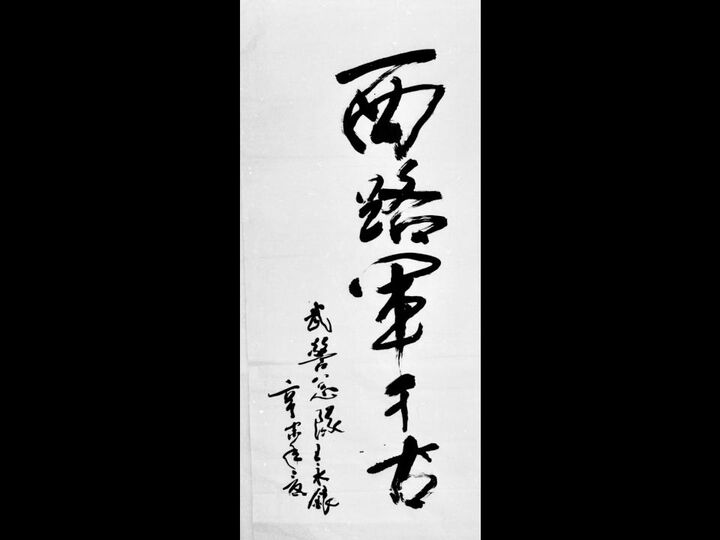 西路军千古
武警总队王永银
辛未年夏